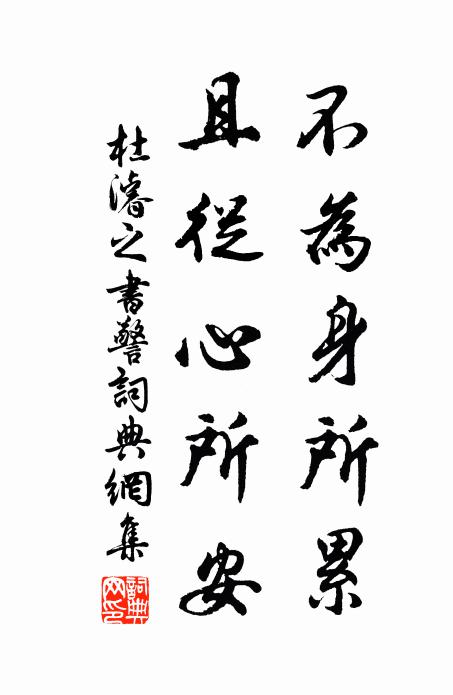 不為身所累
且從心所安
杜濬之書警詞典網集
詞典網印